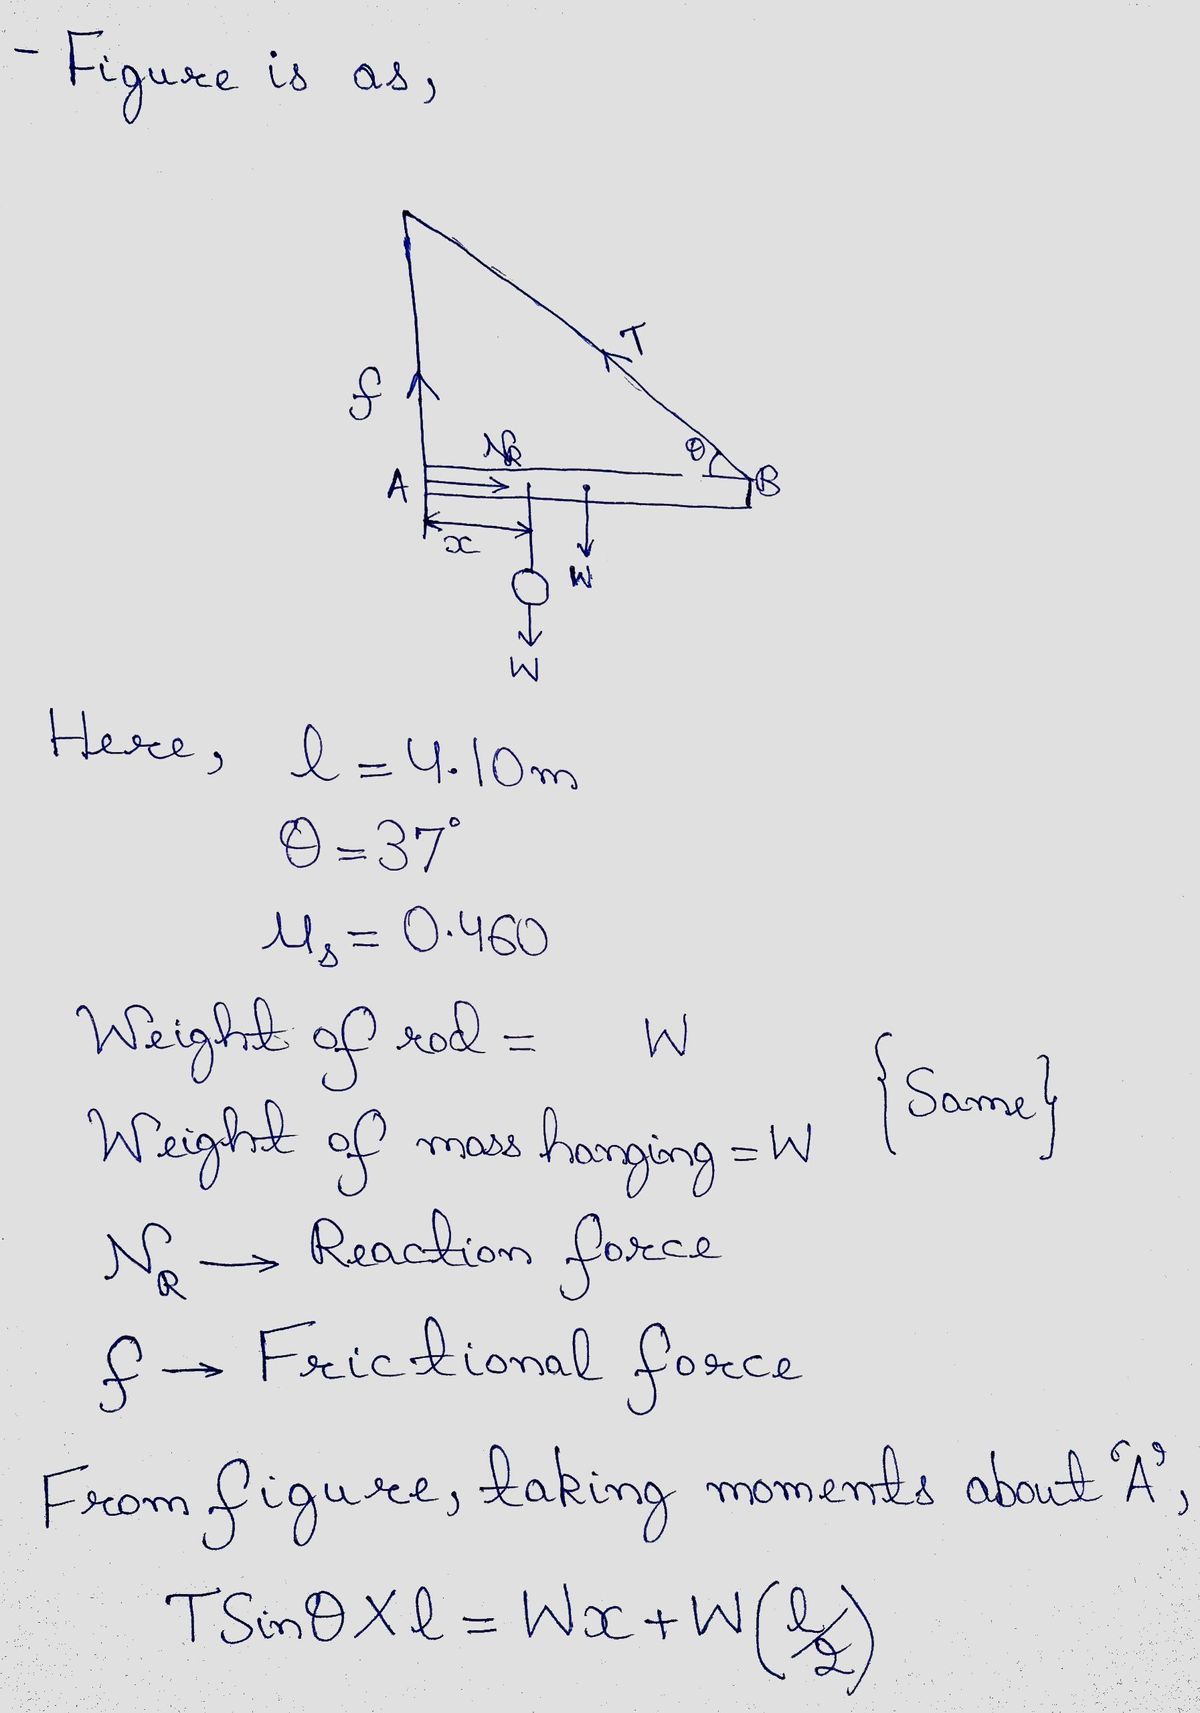 - Figure is as,
T
f
N_R
θ
A
B
x
W
W
Here, l = 4.10m
θ = 37°
μ_s = 0.460
Weight of rod = W
{Same}
Weight of mass hanging = W
N_R → Reaction force
f → Frictional force
From figure, taking moments about 'A',
TSinθ X l = Wx + W(l/2)